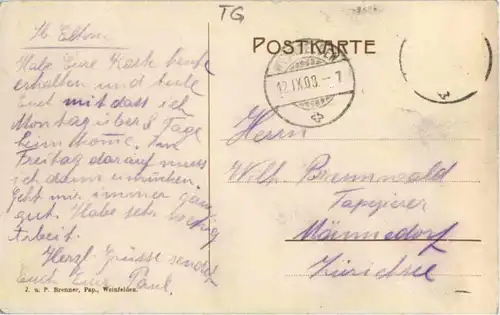 TG
POSTKARTE
12.IX.09.-7
Lb. Eltern
Habe Eure Karte heute
erhalten und teile
Euch mit dass ich
Montag über 8 Tage
heim komme. Am
Freitag darauf muss
ich dann einrücken.
Geht mir immer ganz
gut. Habe sehr wenig
Arbeit.
Herzl. Grüsse sendet
Euch Euer Paul.
Herrn
Wilh. Brennwald
Tapezierer
Männedorf
Zürichsee
J. u. P. Brenner, Pap., Weinfelden.